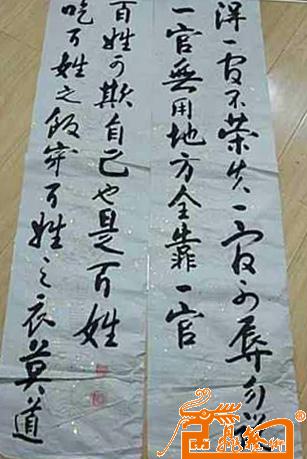 得一官不荣失一官不辱勿说
一官無用地方全靠一官
吃百姓之飯穿百姓之衣莫道
百姓可欺自己也是百姓